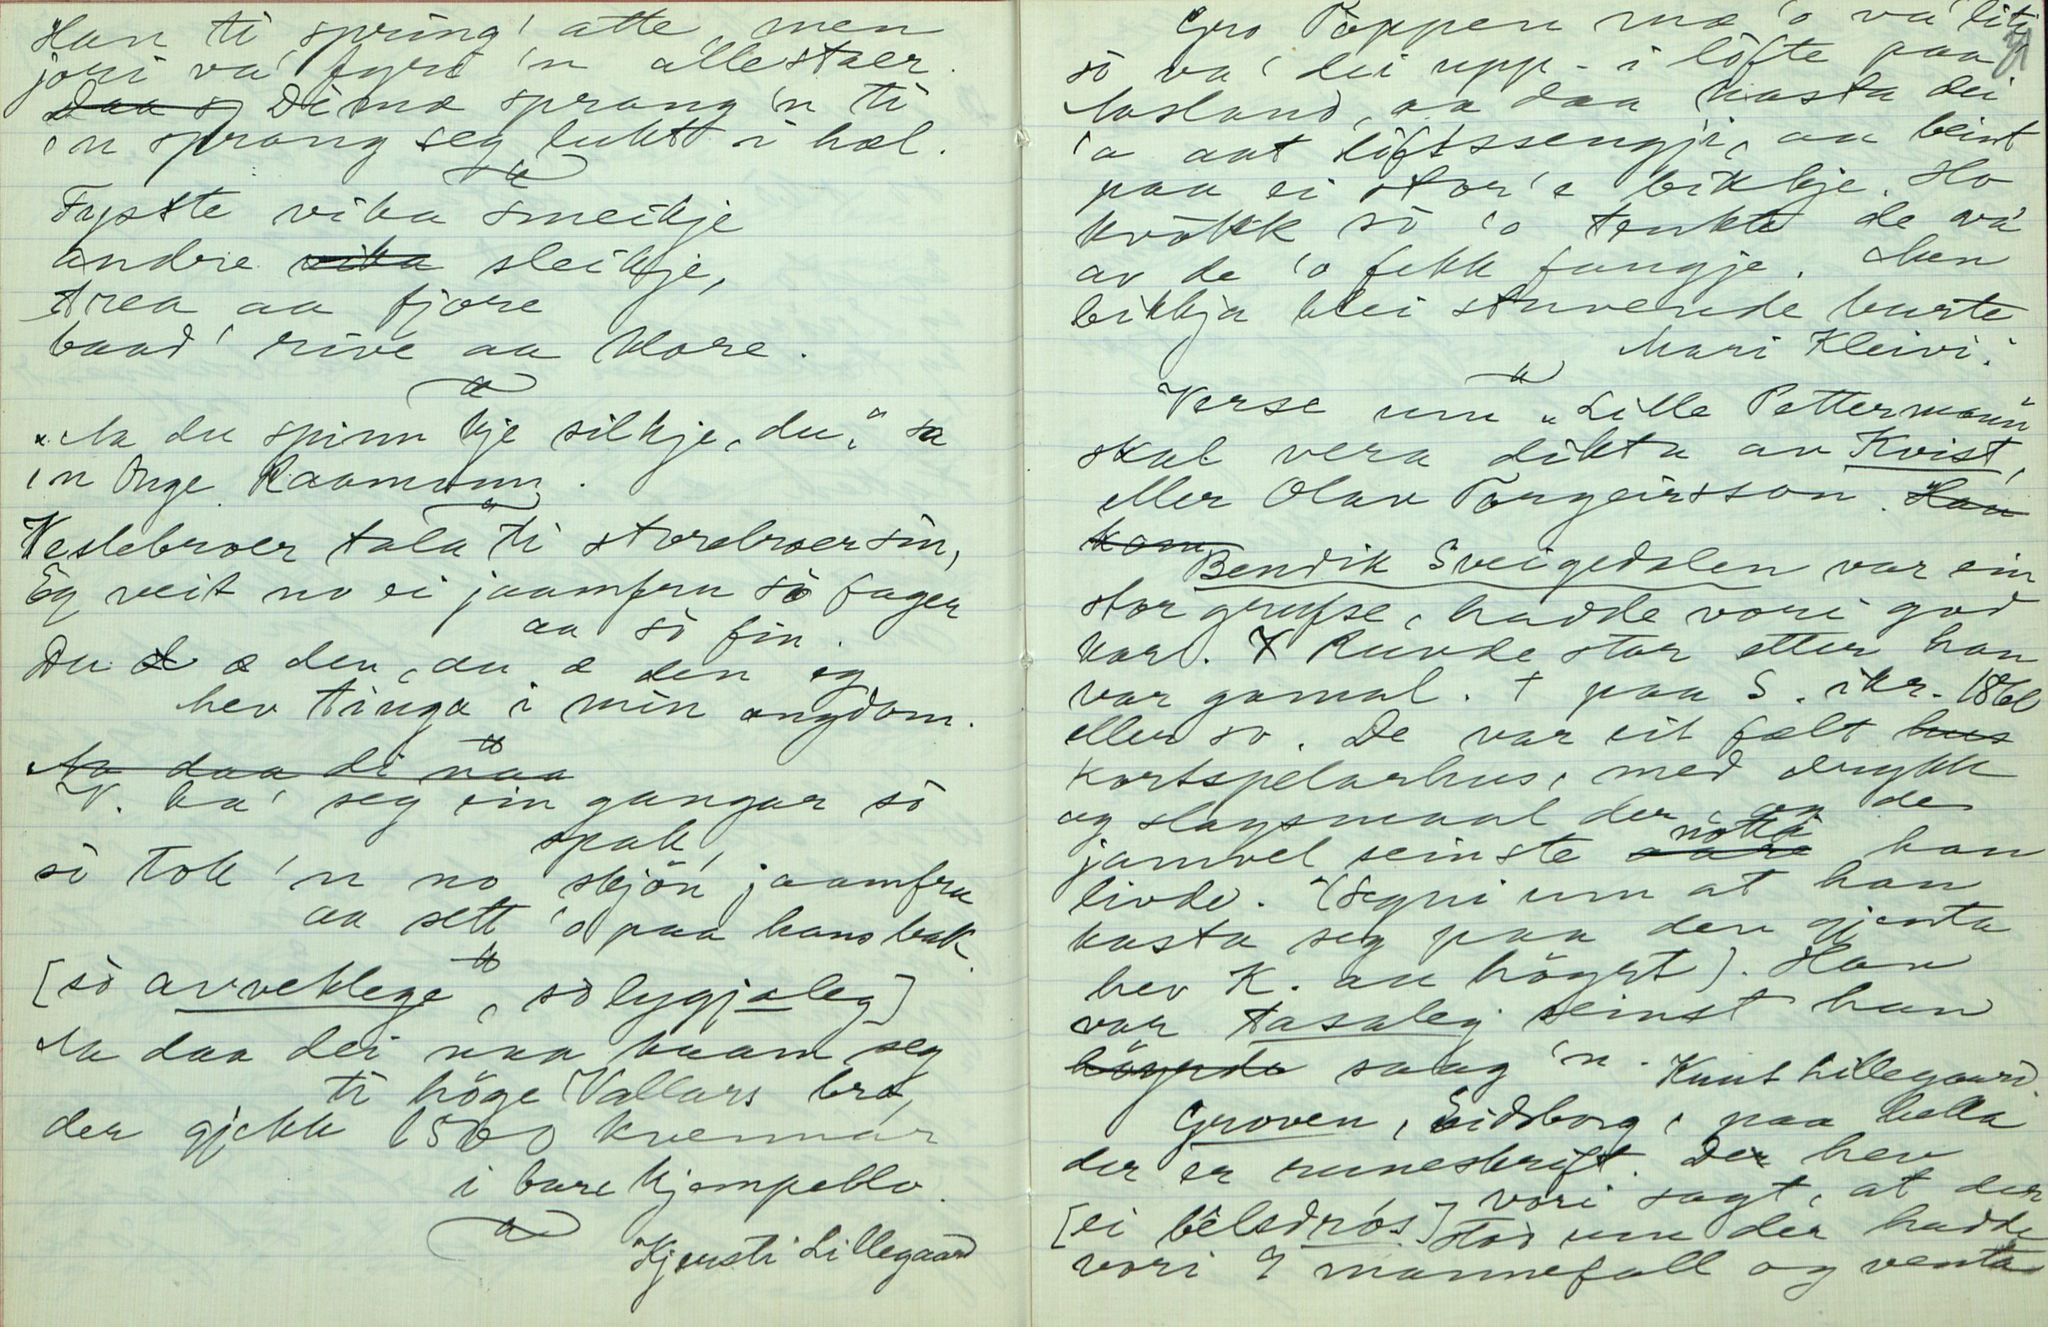 Han ti spring' atte, men
jori va' fyri 'n allestaer.
Daa s Di mæ sprang 'n ti
'n sprang seg lukt i hæl.
Fyste vika smeikje
andre vika sleikje,
trea aa fjore
baad' rive aa klore.
"Aa du spinn kje silkje, du," sa
'n Onge Raamunn.
Veslebroer tala ti storebroer sin,
Eg veit no ei jaamfru so fager
aa so fin.
Du æ den, au æ den eg
hev tinga i min ongdom.
Aa daa di naa
V. ha' seg ein gangar so
spak,
so tok 'n no skjön jaamfru
aa sett 'o paa hans bak.
[so avveklege, so lygjaleg]
Aa daa dei naa kaam seg
ti höge Vallars bro,
der gjekk 1500 kvennar
i bare kjempeblo.
Kjersti Lillegaard
Gro Poppen mæ 'o va' liti
so va' dei upp i löfte paa
Aasland, aa daa kasta dei
'o aat löftssengji, aa beint
paa ei stor'e bikkje. Ho
kvökk so 'o tenkte de va'
av de 'o fekk fangje. Men
bikkja blei stuvende burte
Mari Kleivi.
Verse um "Lille Pettermann"
skal vera dikta av Kvist,
eller Olav Torgeirsson. Han
kom
Bendik Sveigedalen var ein
stor grufse, hadde vori god
kar. Ruvde stor etter han
var gamal. † paa S. ikr. 1860
eller so. De var eit fælt hus
kortspelarhus, med drykk
og slagsmaal der, og de
jamvel seinste notti han
livde. (Segni um at han
kasta seg paa den gjenta
hev K. au höyrt). Han
var tasaleg seinst han
höyrde saag 'n. Knut Lillegaard
Groven, Eidsborg, paa hella
der er runeskrift. Der hev
vori sagt, at der
[ei belsdros] stod um der hadde
vori 9 mannefall og venta